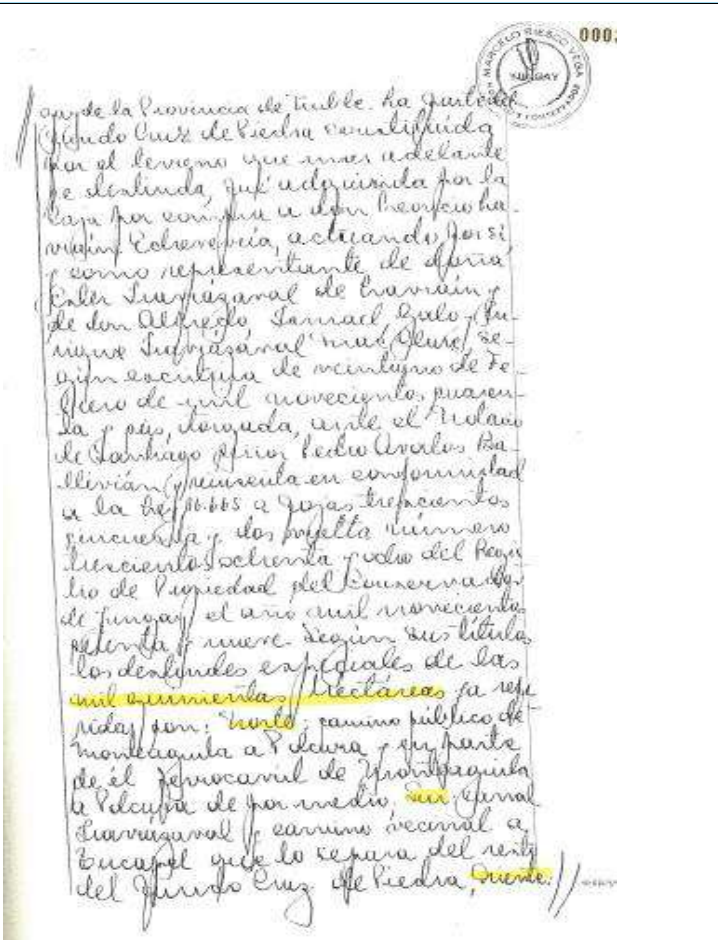 000
MARCELO RIESCO VEGA
YUNGAY
gay de la Provincia de Ñuble. La parte del
fundo Cruz de Piedra constituida
por el terreno que mas adelante
se deslinda, fué adquirida por la
Caja por compra a don
Echeverría, actuando por sí
y como representante de doña
Ester Irarrázaval de Larraín y
de don Alfredo, Ismael, Galo y En-
rique Irarrázaval Mac Clure, se-
gún escritura de veintiuno de Fe-
brero de mil novecientos cuaren-
ta y seis, otorgada, ante el Notario
de Santiago señor Pedro Avalos Ba-
llivián y reinscrita en conformidad
a la Ley 16.665 a fojas trescientos
cincuenta y dos vuelta número
trescientos ochenta y ocho del Regis-
tro de Propiedad del Conservador
de Yungay el año mil novecientos
setenta y nueve. Según sus títulos
los deslindes especiales de las
mil quinientas hectáreas ya refe-
ridas son: Norte; camino público de
Monteaguila a Polcura y en parte
de él ferrocarril de Monteaguila
a Polcura de por medio; Sur, canal
Irarrázaval y camino vecinal a
Tucapel que lo separa del resto
del fundo Cruz de Piedra, Oriente: